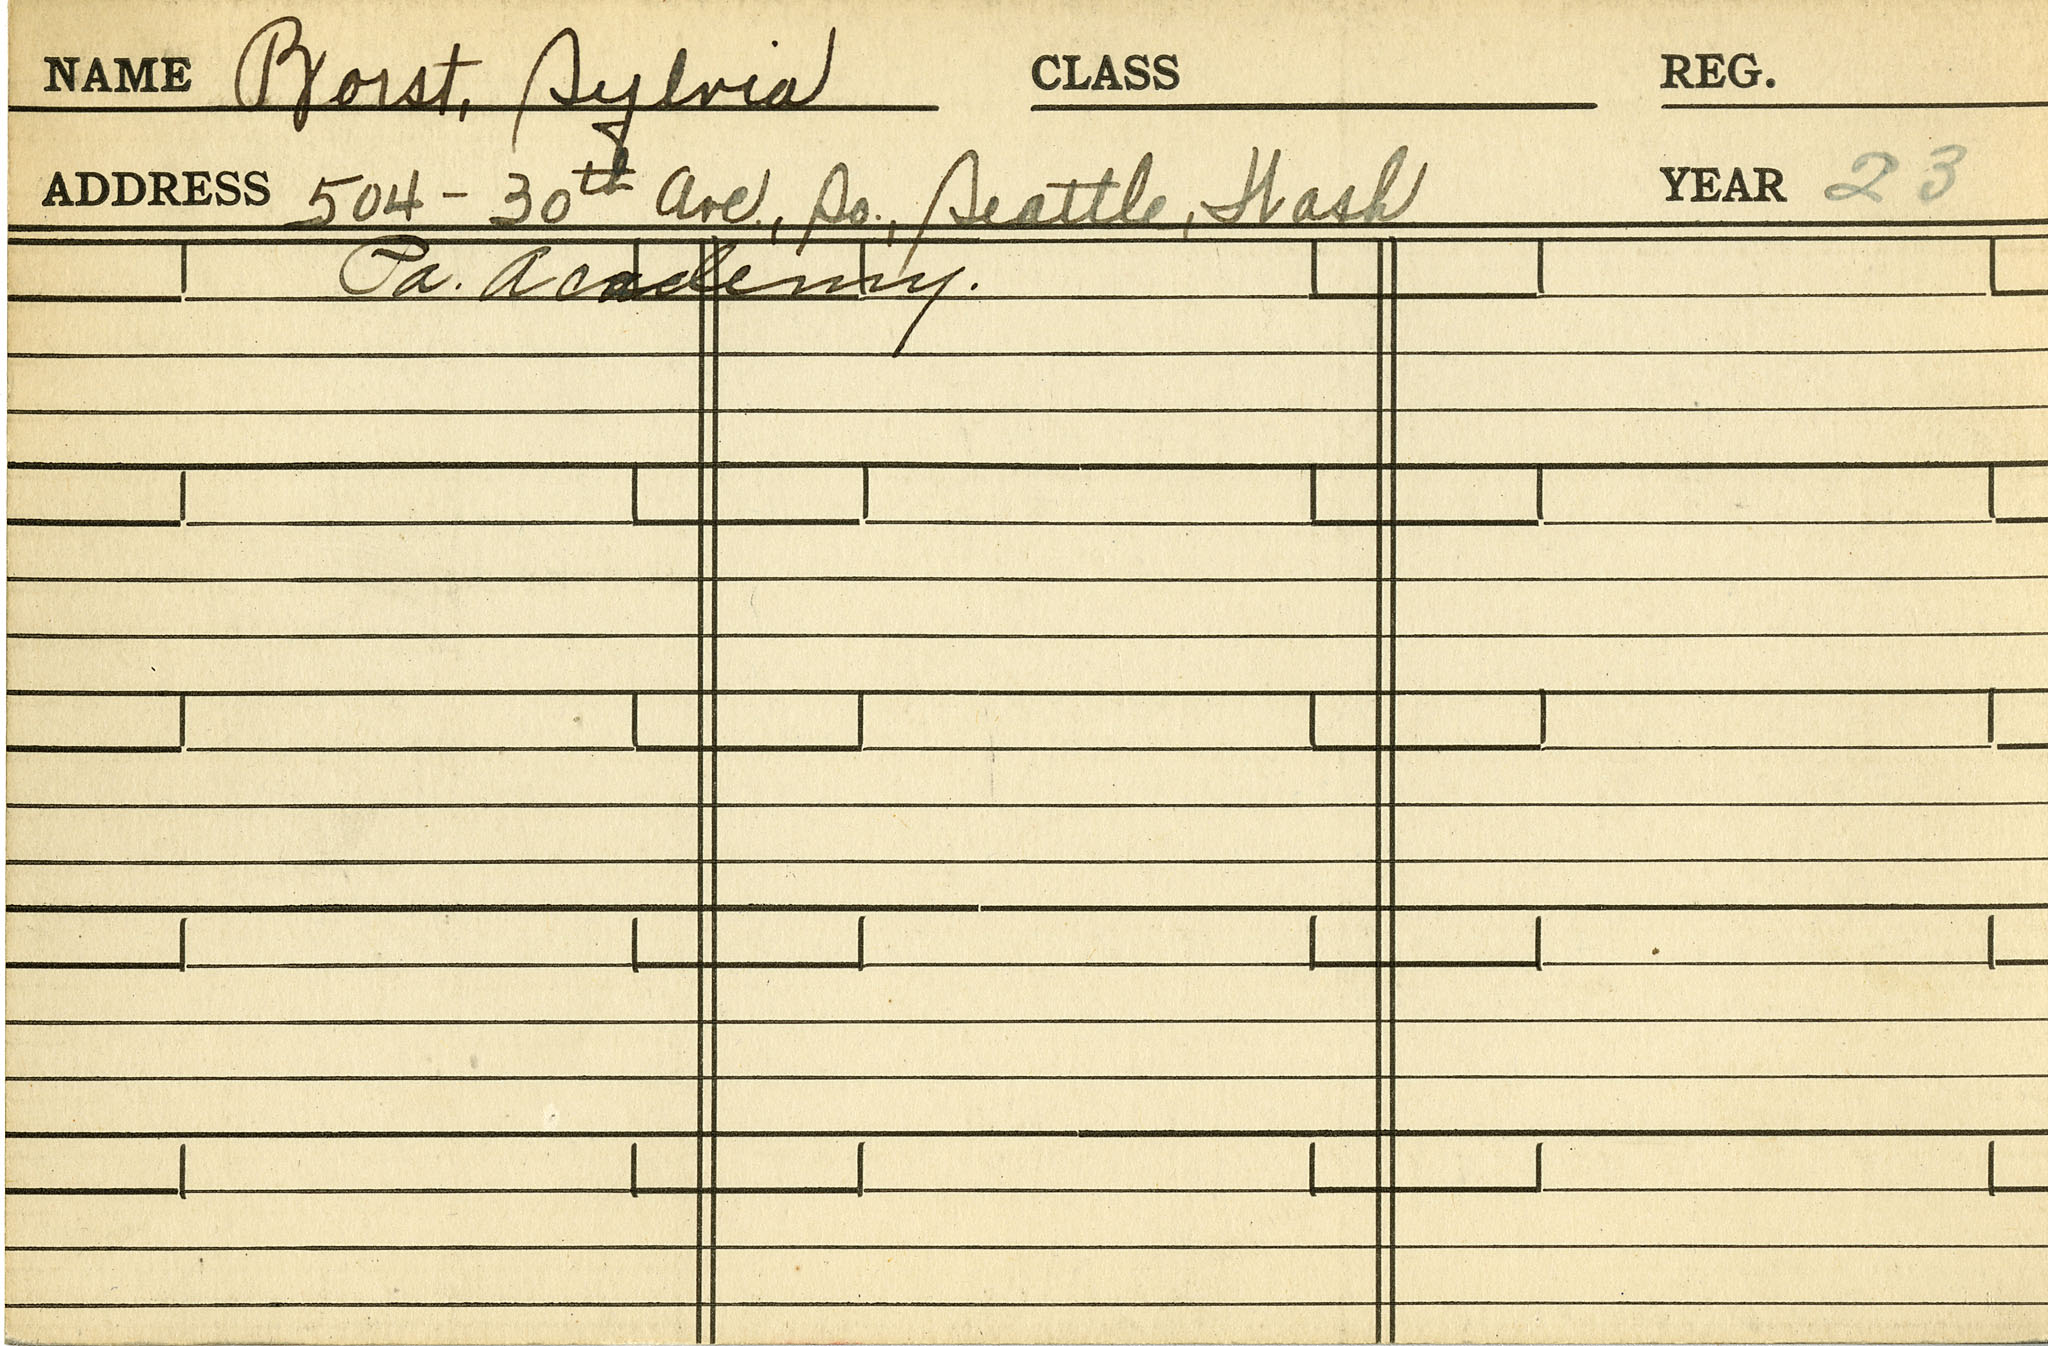 NAME Borst, Sylvia CLASS REG.
ADDRESS 504 - 30th Ave., So., Seattle, Wash YEAR 23
Pa. Academy.